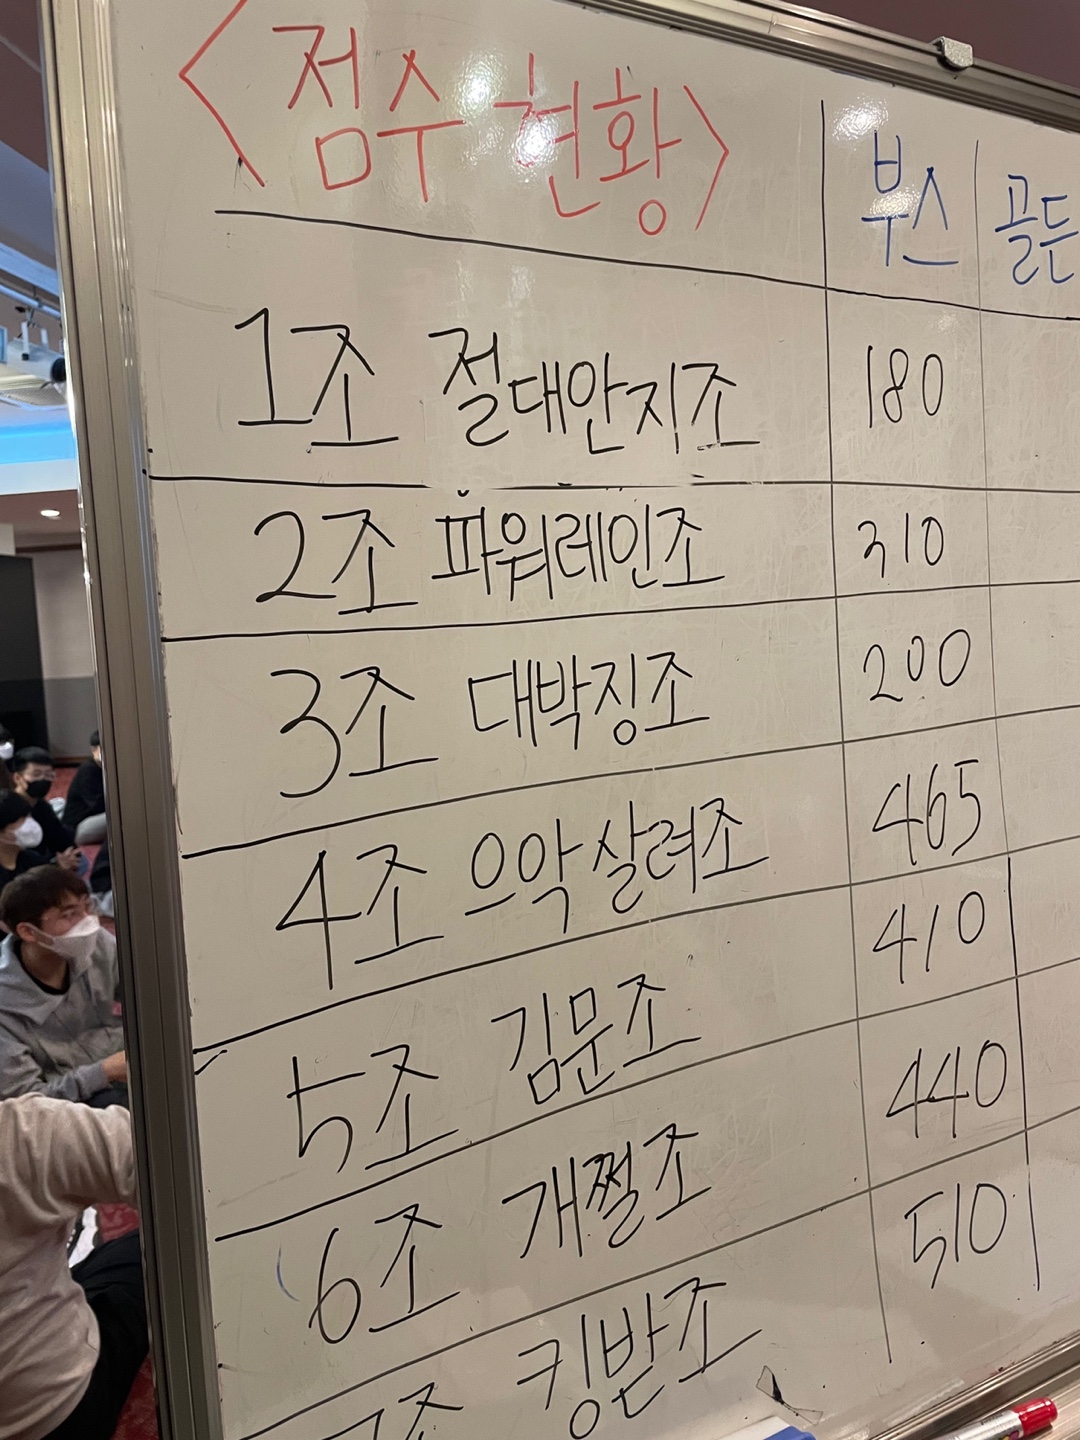 <점수 현황> 부스 골든
1조 절대안지조 180
2조 파워레인조 310
3조 대박징조 200
4조 으악살려조 465
5조 김문조 410
6조 개쩔조 440
7조 킹받조 510